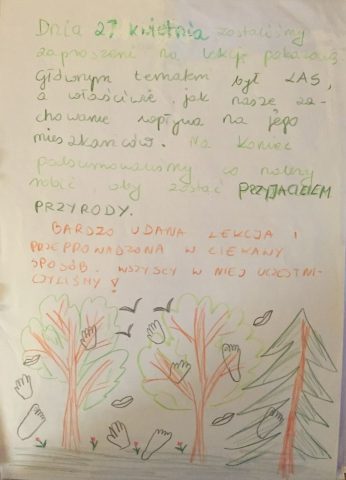 Dnia 27 kwietnia zostaliśmy
zaproszeni na lekcję pokazową
głównym tematem był LAS,
a właściwie jak nasze za-
chowanie wpływa na jego
mieszkańców. Na koniec
podsumowaliśmy co należy
robić, aby zostać PRZYJACIELEM
PRZYRODY.
BARDZO UDANA LEKCJA I
PRZEPROWADZONA W CIEKAWY
SPOSÓB. WSZYSCY W NIEJ UCZESTNI-
CZYLIŚMY!